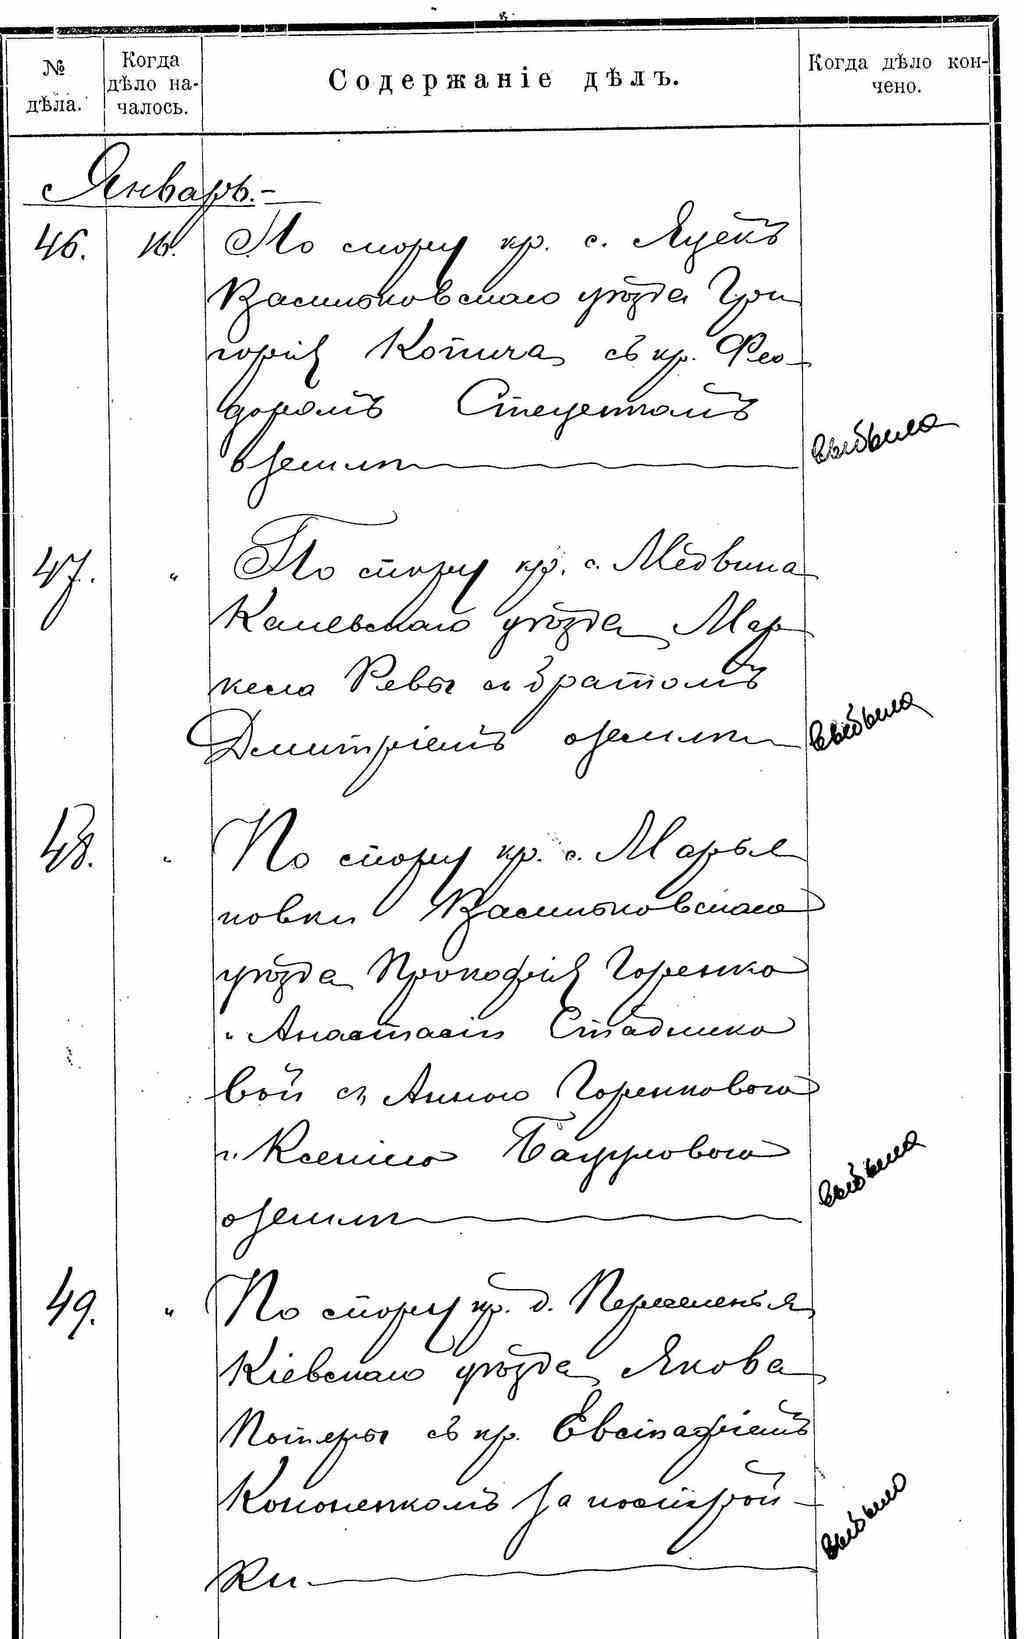 № дѣла.
Когда дѣло на-чалось.
Содержаніе дѣлъ.
Когда дѣло кон-чено.
Январь.-
46. 16. По спору кр. с. Яцекъ
Васильковскаго уѣзда Гри
горія Копича съ кр. Фео-
доромъ Стеценкомъ
о землѣ
выбыла
47. " По спору кр. с. Медвина
Каневскаго уѣзда Мар
кела Ревы съ братомъ
Дмитріемъ о землѣ
выбыла
48. " По спору кр. с. Марья
новки Васильковскаго
уѣзда Прокофія Горенко
и Анастасіи Стаднико
вой съ Анною Горенковою
и Ксеніею
о землѣ
выбыла
49. " По спору кр. д. Переселенья
Кіевскаго уѣзда Якова
Потеры съ кр. Евстафіемъ
Кононенкомъ за построй-
ки.
выбыло